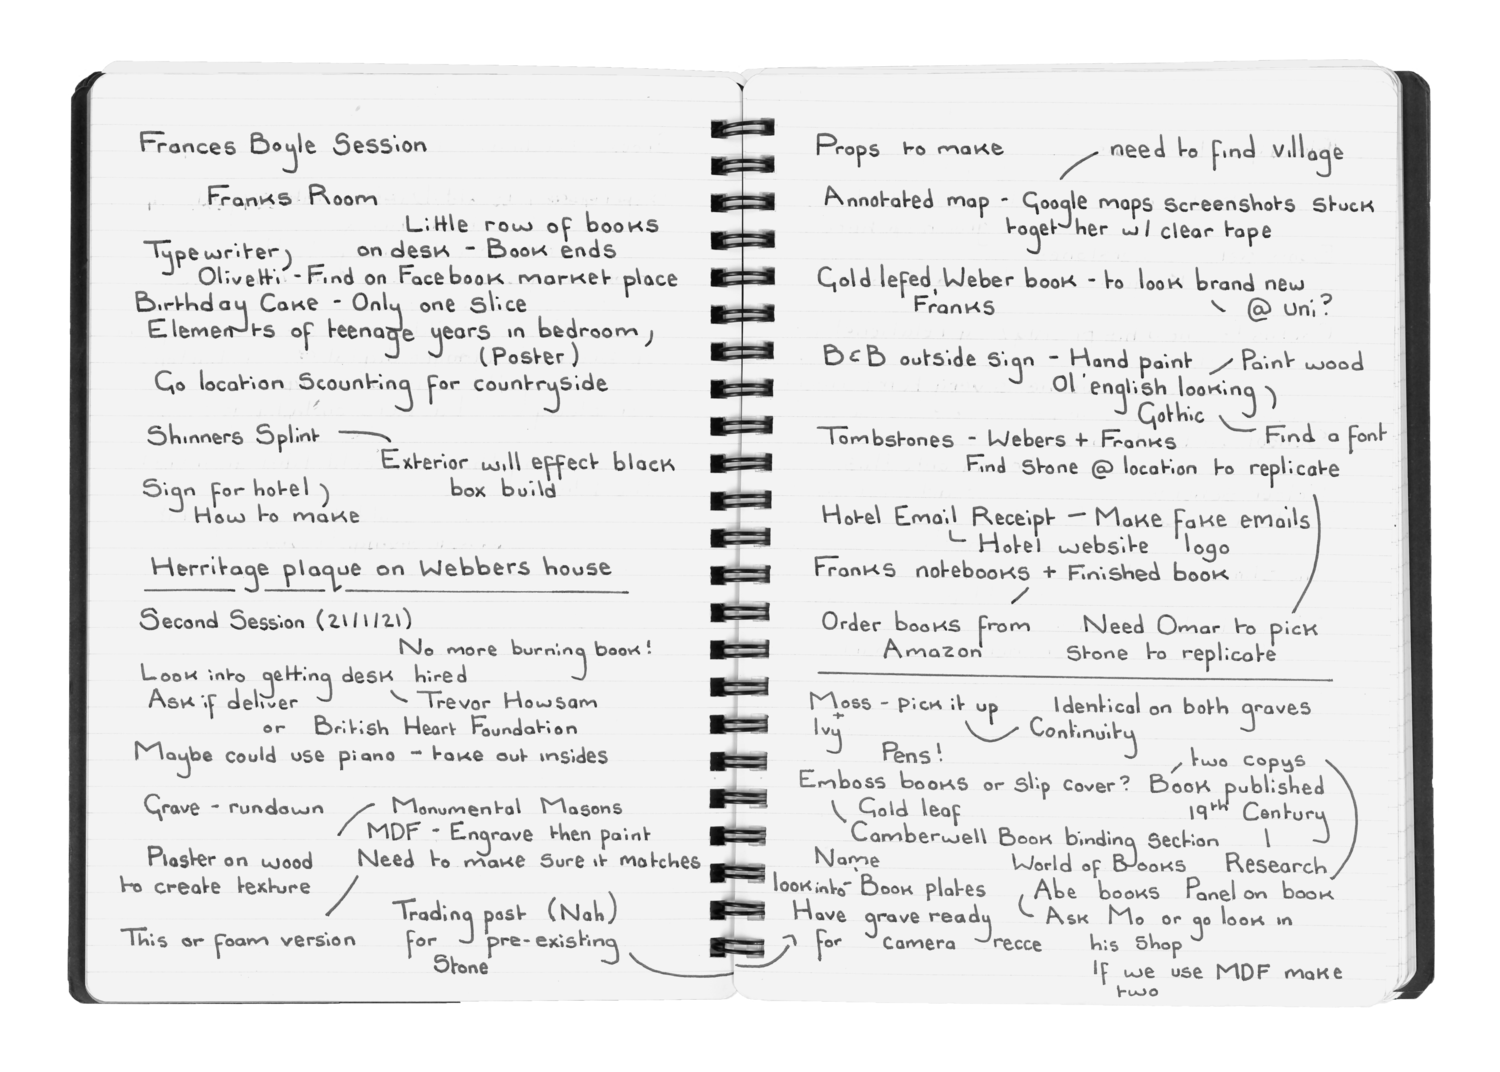 Frances Boyle Session
Franks Room
Little row of books
on desk - Book ends
Typewriter,
Olivetti - Find on Facebook market place
Birthday Cake - Only one slice
Elements of teenage years in bedroom,
(Poster)
Go location Scounting for countryside
Shinners Splint
Exterior will effect black
box build
Sign for hotel,
How to make
Herritage plaque on Webbers house
Second Session (21/1/21)
No more burning book!
Look into getting desk hired
Ask if deliver
Trevor Howsam
or British Heart Foundation
Maybe could use piano - take out insides
Grave - rundown
Monumental Masons
MDF - Engrave then paint
Plaster on wood
to create texture
Need to make sure it matches
This or foam version
Trading post (Nah)
for pre-existing
Stone
Props to make
need to find village
Annotated map - Google maps screenshots stuck
together w/ clear tape
Gold lefed, Weber book - to look brand new
Franks
@ uni?
B&B outside sign - Hand paint
Paint wood
Ol' english looking,
Gothic
Find a font
Tombstones - Webers + Franks
Find stone @ location to replicate
Hotel Email Receipt - Make fake emails
Hotel website logo
Franks notebooks + Finished book
Order books from
Amazon
Need Omar to pick
stone to replicate
Moss - pick it up
+
Ivy
Identical on both graves
Continuity
Pens!
two copys
Emboss books or slip cover? Book published
Gold leaf
19th Century
Camberwell Book binding section
Name
World of Books
Research
look into Book plates
Abe books
Panel on book
Have grave ready
for camera recce
Ask Mo or go look in
his shop
If we use MDF make
two